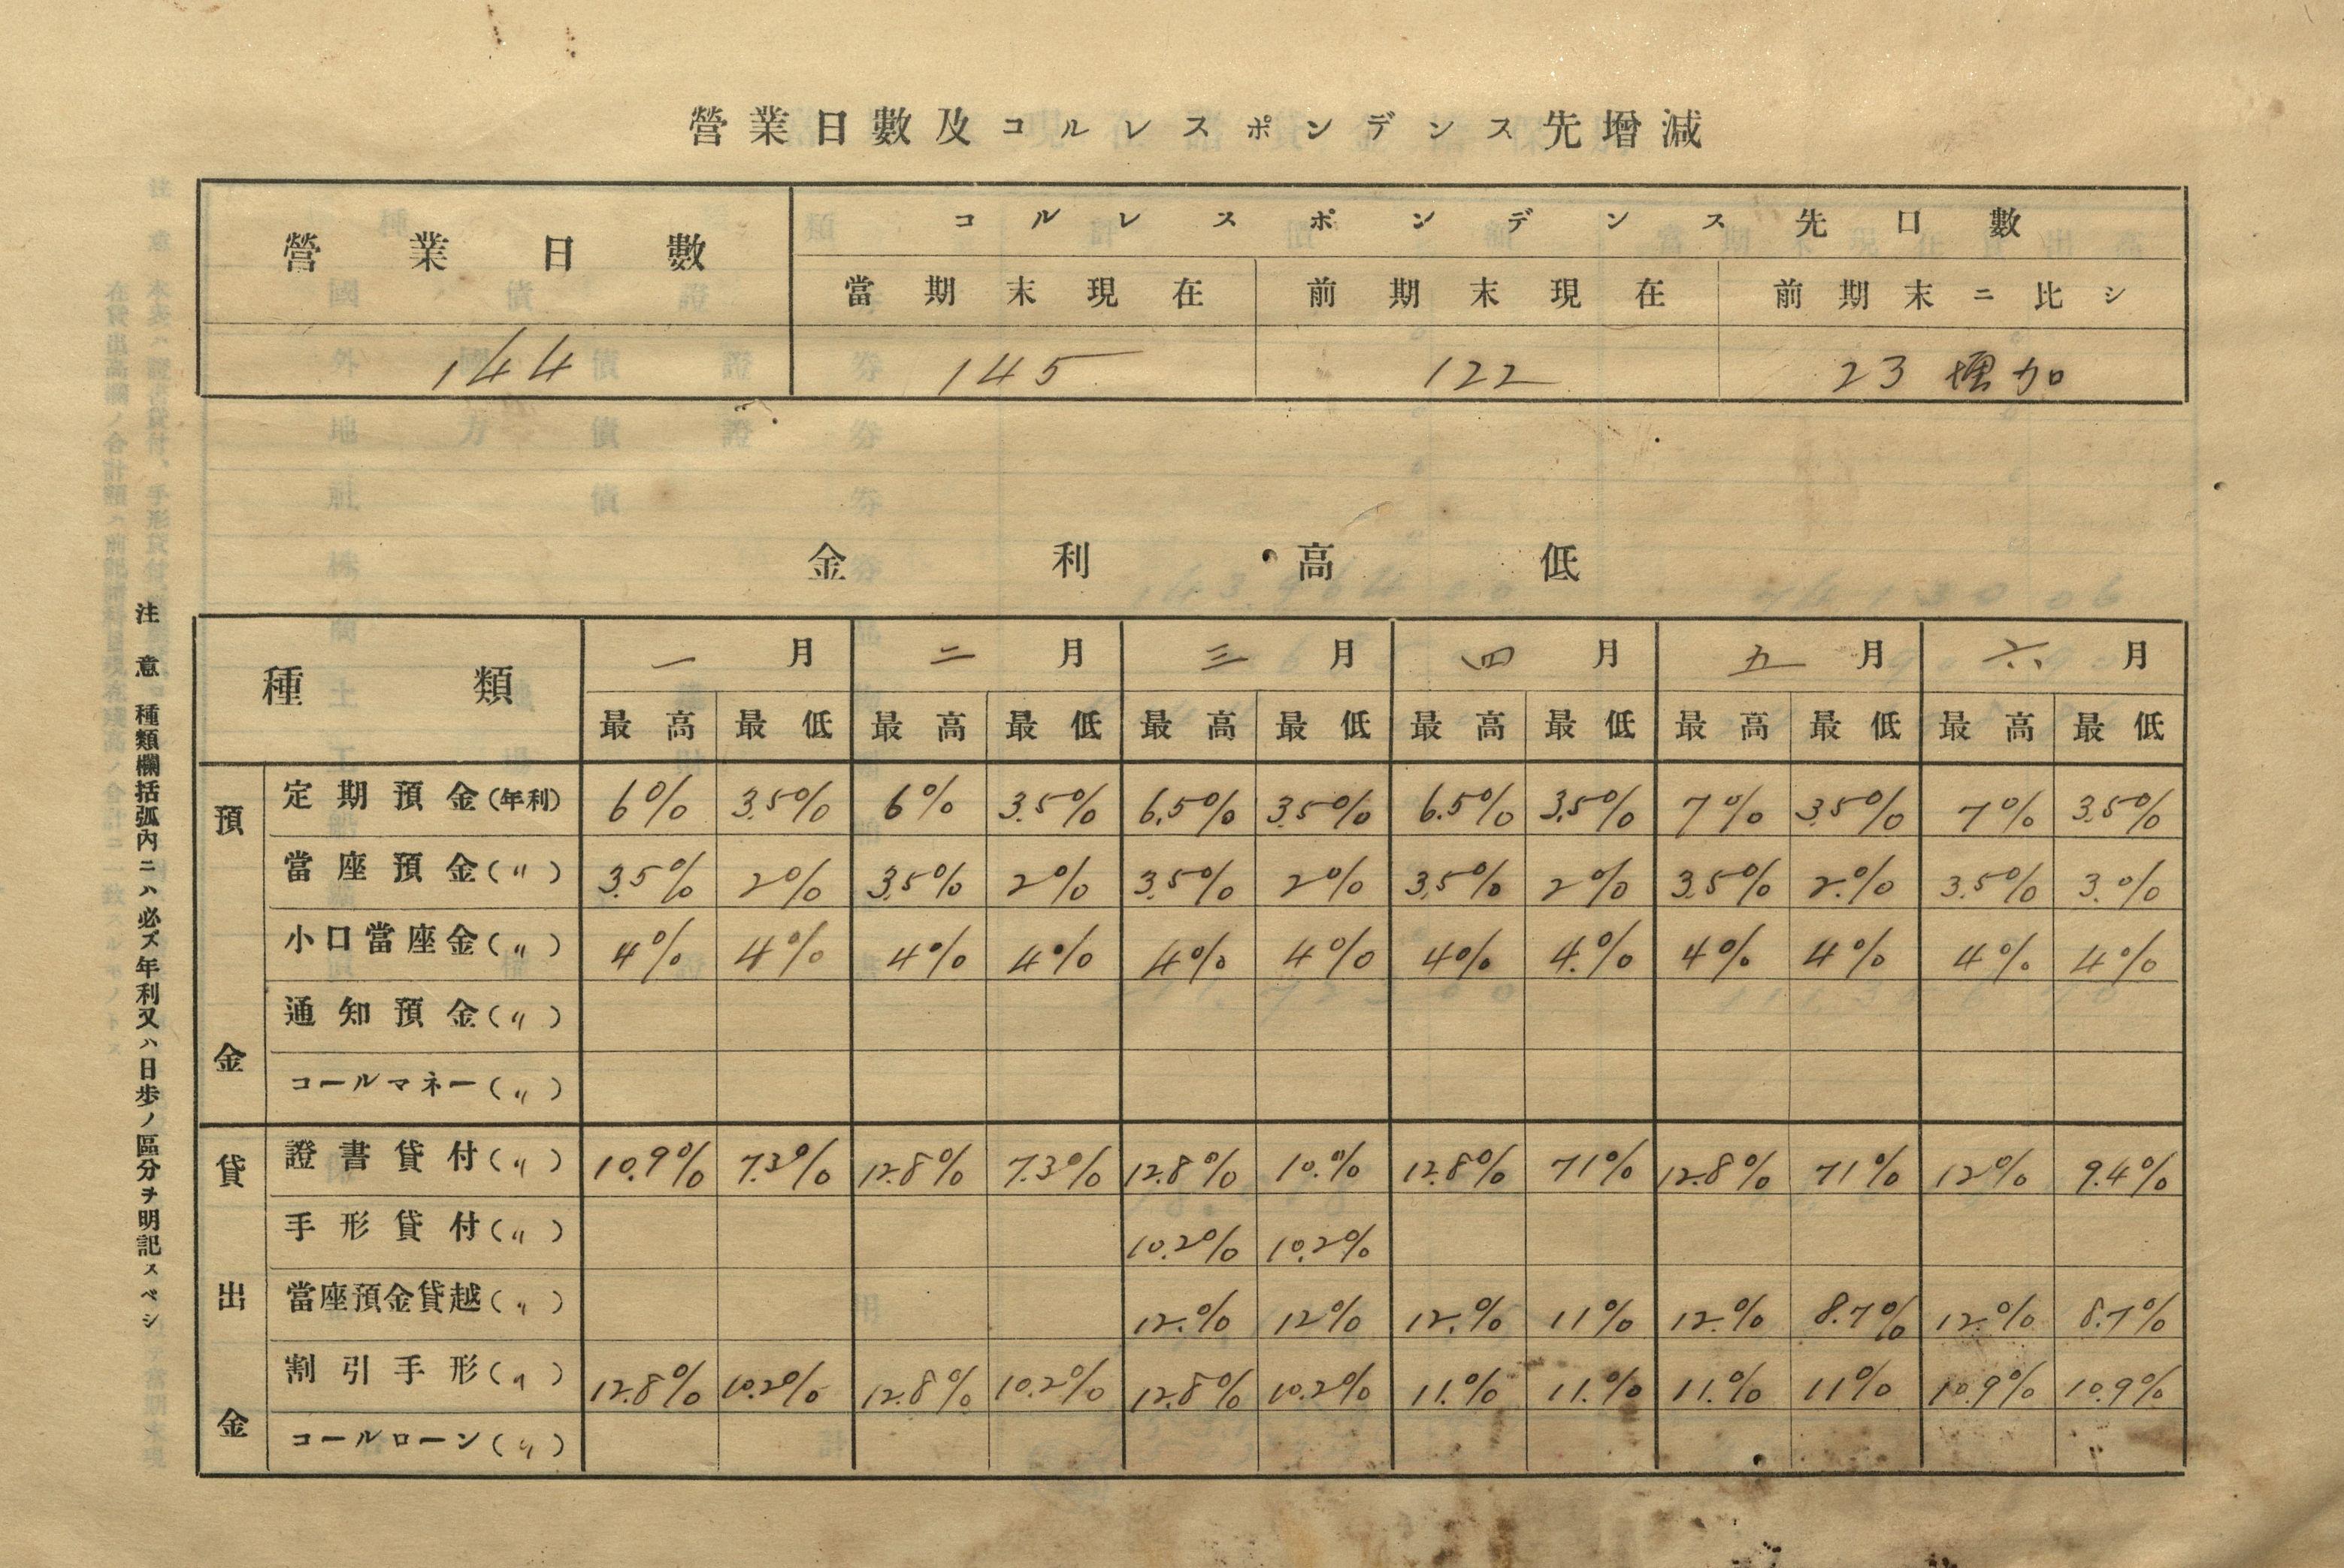 營業日數及コルレスポンデンス先增減
營業日數 コルレスポンデンス先口數
當期末現在 前期末現在 前期末ニ比シ
144 145 122 23 増加
金利高低
種類 一月 二月 三月 四月 五月 六月
最高 最低 最高 最低 最高 最低 最高 最低 最高 最低 最高 最低
預金
定期預金(年利) 6% 3.5% 6% 3.5% 6.5% 3.5% 6.5% 3.5% 7% 3.5% 7% 3.5%
當座預金(〃) 3.5% 2% 3.5% 2% 3.5% 2% 3.5% 2% 3.5% 2.% 3.5% 3.%
小口當座金(〃) 4% 4% 4% 4% 4% 4% 4% 4.% 4% 4% 4% 4%
通知預金(〃)
コールマネー(〃)
貸出金
證書貸付(〃) 10.9% 7.3% 12.8% 7.3% 12.8% 10.% 12.8% 71% 12.8% 71% 12% 9.4%
手形貸付(〃) 10.2% 10.2%
當座預金貸越(〃) 12.% 12% 12.% 11% 12.% 8.7% 12.% 8.7%
割引手形(〃) 12.8% 10.2% 12.8% 10.2% 12.8% 10.2% 11.% 11.% 11.% 11% 10.9% 10.9%
コールローン(〃)
注意 種類欄括弧內ニハ必ズ年利又ハ日步ノ區分ヲ明記スベシ